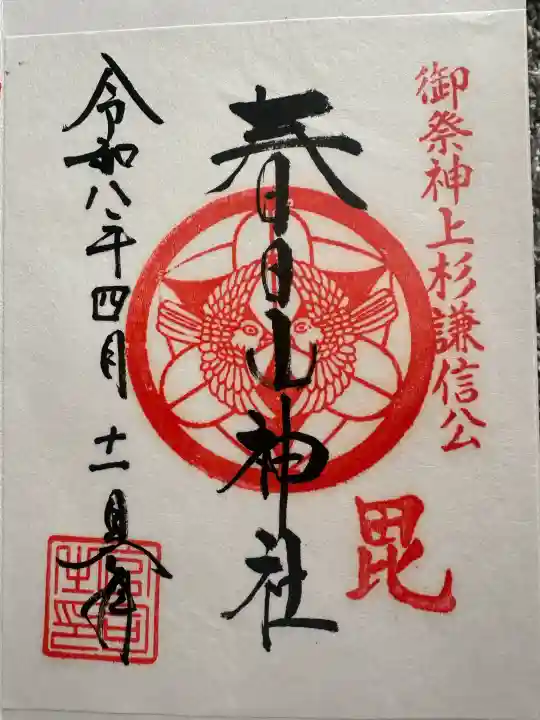 御祭神上杉謙信公
毘
春日山神社
令和八年四月十一日拝
宮司之印